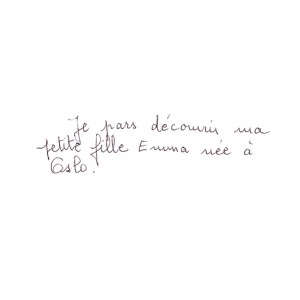 Je pars découvrir ma
petite fille Emma née à
Oslo.